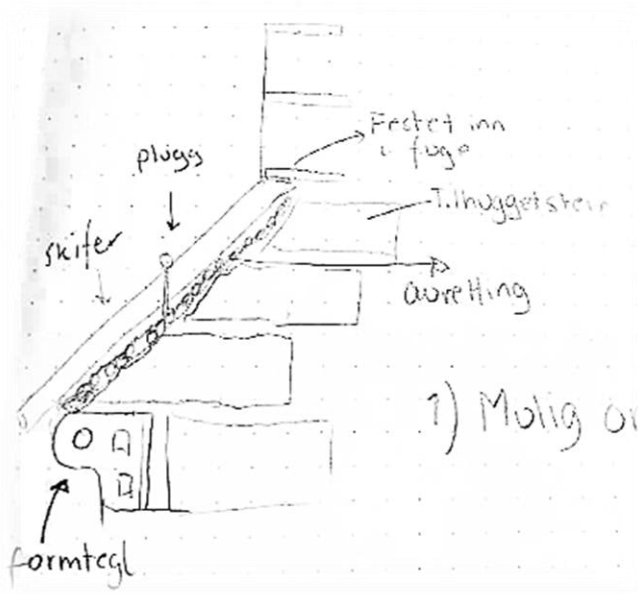 Festet inn
i fuge
plugg
Tilhuggetstein
skifer
avretting
1) Mulig
formtegl